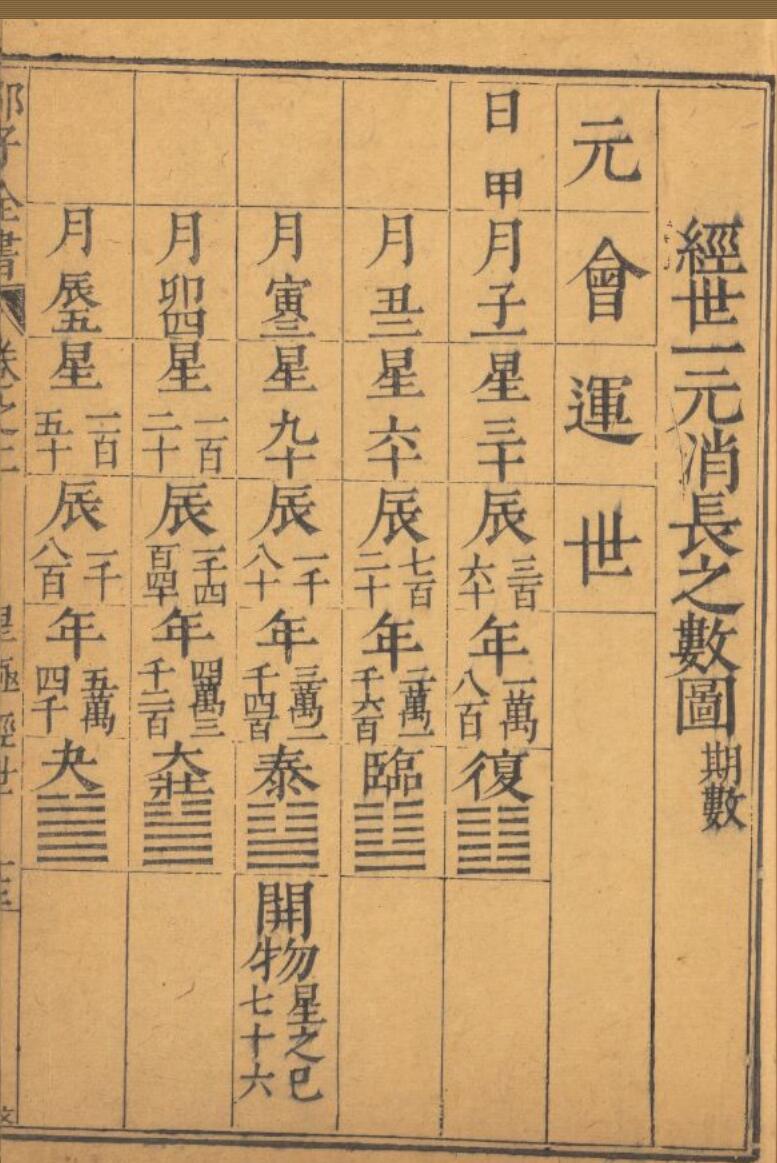 經世一元消長之數圖期數
元會運世
日甲月子一星三十辰三百六十年一萬八百復
月丑二星六十辰七百二十年二萬一千六百臨
月寅三星九十辰一千八十年三萬二千四百泰開物星之巳七十六
月卯四星一百二十辰一千四百四十年四萬三千二百大壯
月辰五星一百五十辰一千八百年五萬四千夬